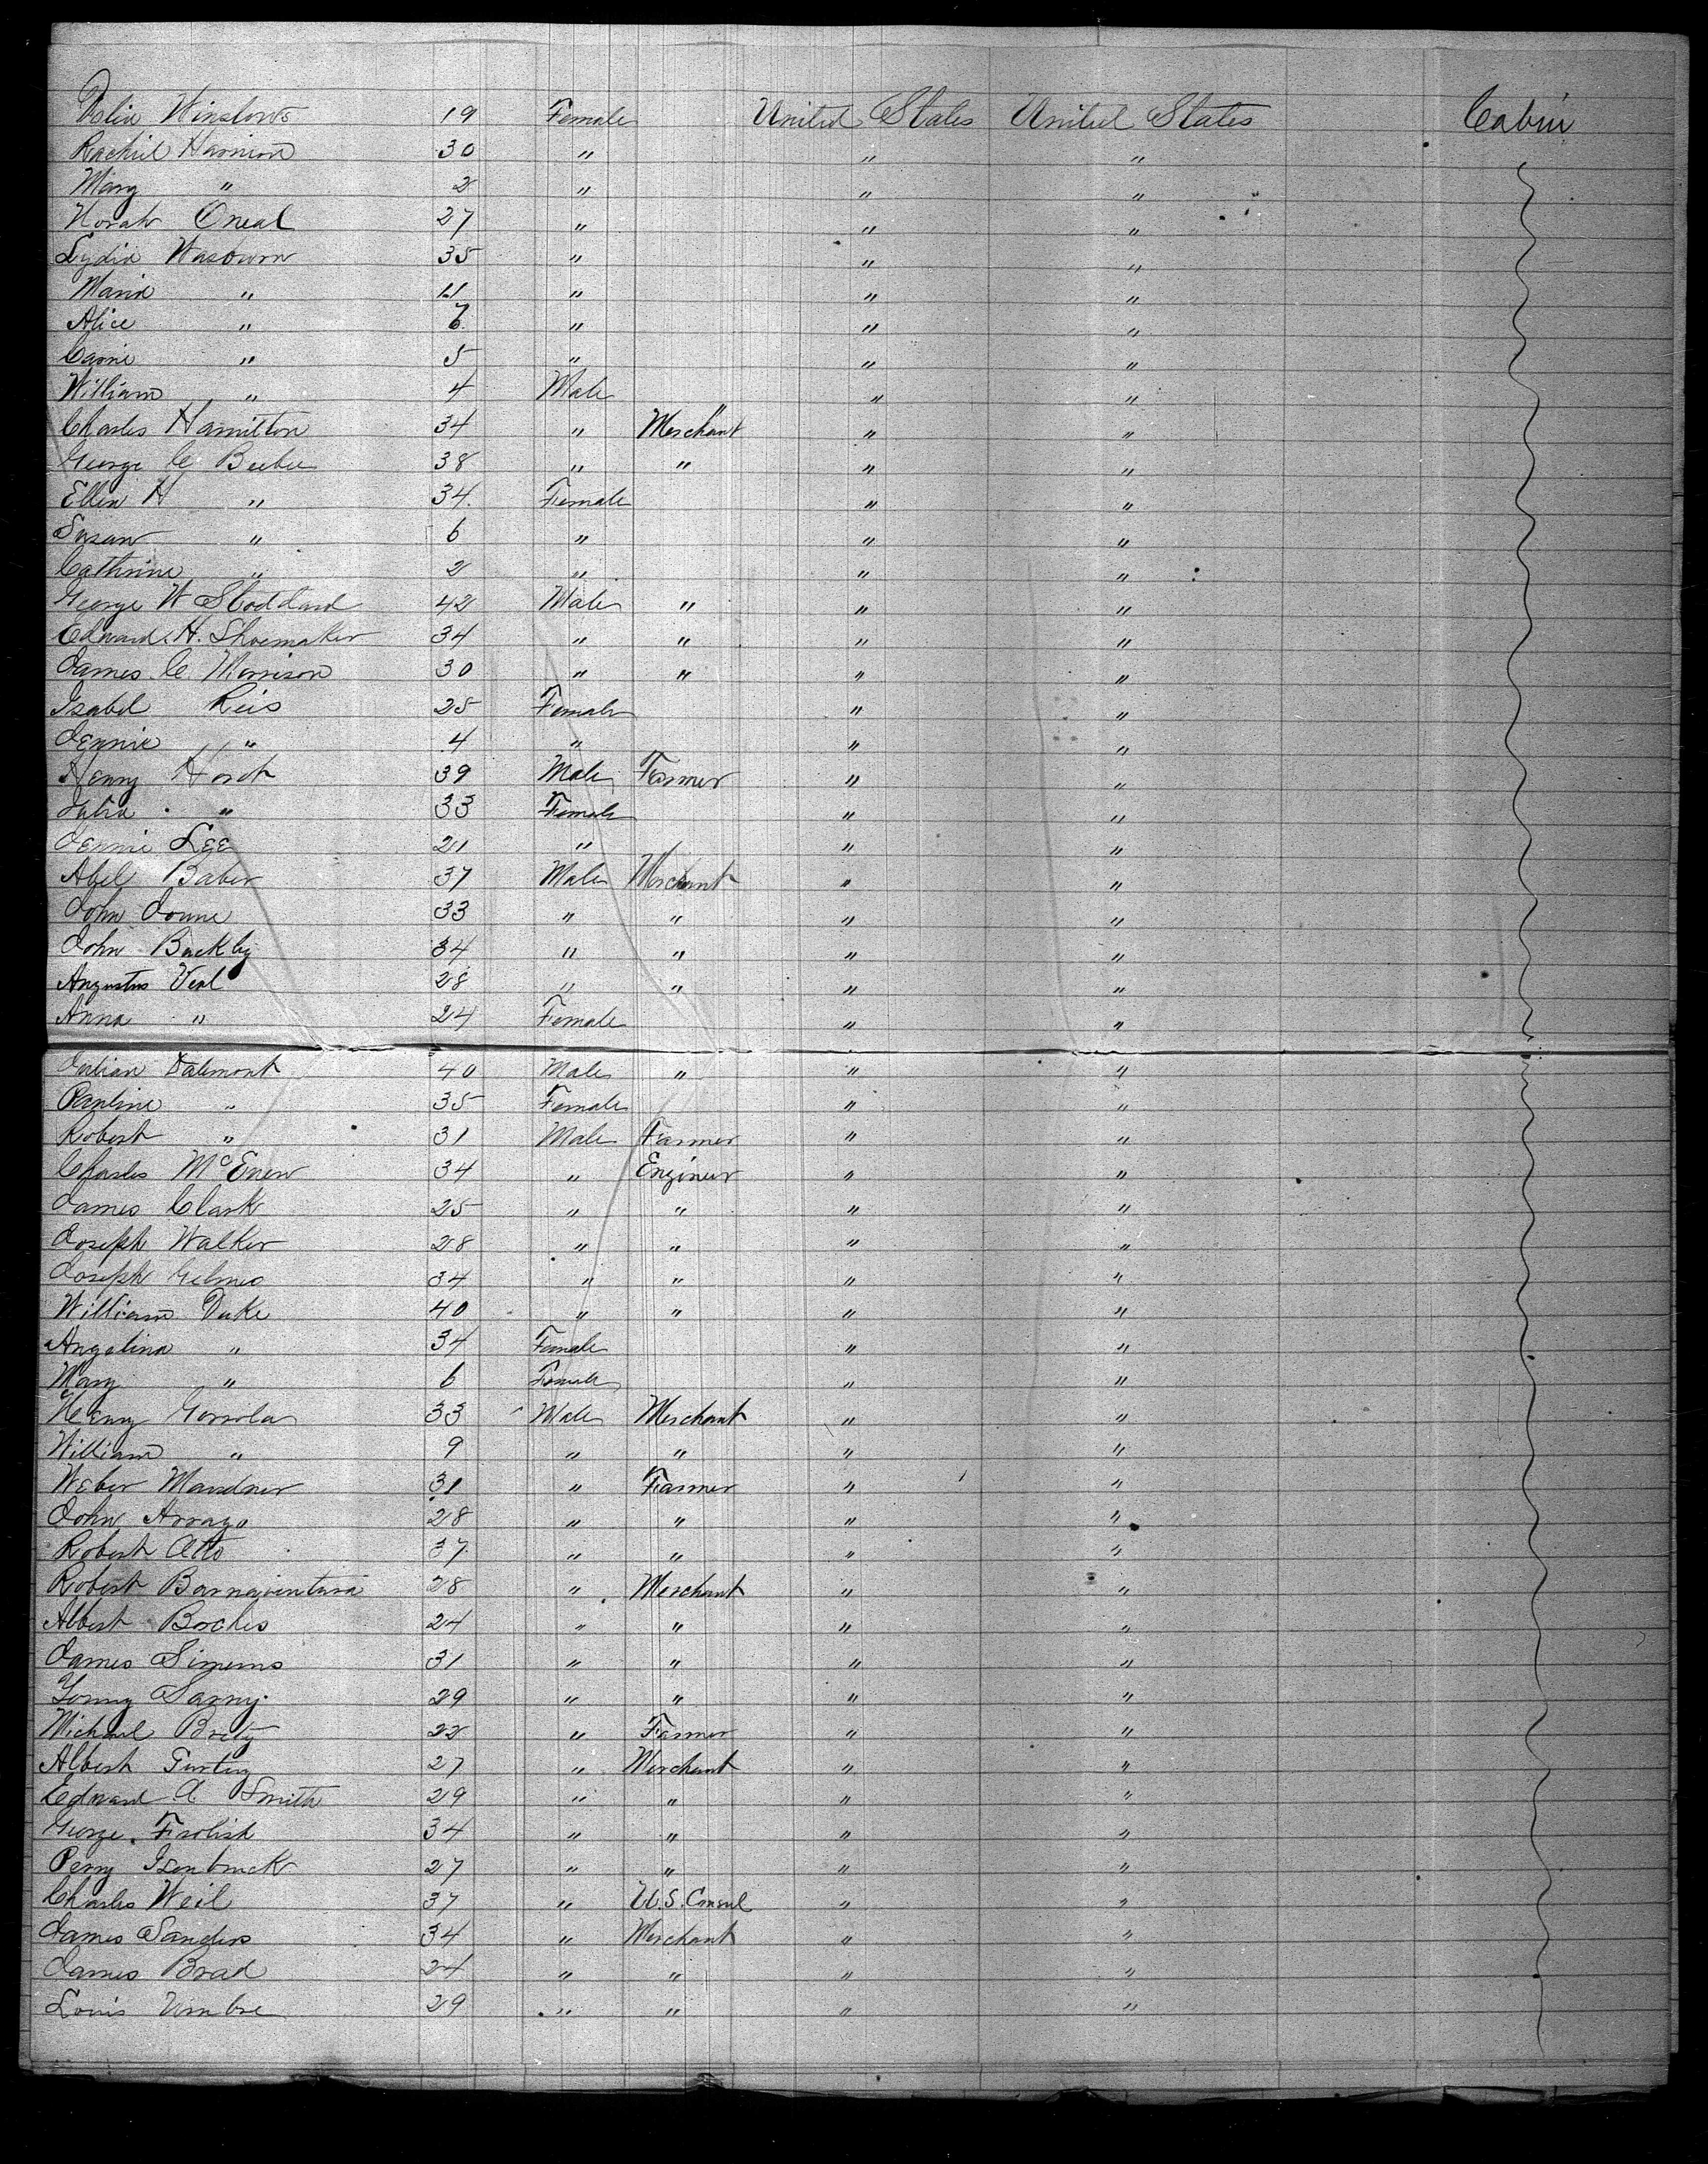 Delia Winslow 19 Female United States United States Cabin
Rachiel Harrison 30 " " "
Mary " 2 " " "
Norah Oneal 27 " " "
Lydia Wasburn 35 " " "
Maria " 11 " " "
Alice " " " "
Carrie " 5 " " "
William " 4 Male " "
Charles Hamilton 34 " Merchant " "
George C Beebee 38 " " " "
Ellen H " 34 Female " "
Susan " 6 " " "
Cathrine " 2 " " "
George W Stoddard 42 Male " " "
Edward. H. Shoemaker 34 " " " "
James C Morrison 30 " " " "
Isabel Reis 25 Female " "
Jennie " 4 " " "
Henry 39 Male Farmer " "
Julia " 33 Female " "
Jennie Lee 21 " " "
Abel Baber 37 Male Merchant " "
John 33 " " " "
John Buckley 34 " " " "
Augustus Veal 28 " " " "
Anna " 24 Female " "
Julian Dalemont 40 Male " " "
Pauline " 35 Female " "
Robert " 31 Male Farmer " "
Charles McEnew 34 " Engineer " "
James Clark 25 " " " "
Joseph Walker 28 " " " "
Joseph 34 " " " "
William Duke 40 " " " "
Angelina " 34 Female " "
Mary " 6 Female " "
Henry 33 Male Merchant " "
William " 9 " " " "
Weber Mardner 31 " Farmer " "
John Arrago 28 " " " "
Robert Otto 37 " " " "
Robert 28 " Merchant " "
Albert Borches 24 " " " "
James Simems 31 " " " "
Young Sarny 29 " " " "
Michael 22 " Farmer " "
Albert 27 " Merchant " "
Edward A Smith 29 " " " "
George. Frolish 34 " " " "
Perry Isenbruck 27 " " " "
Charles Weil 37 " U.S. Consul " "
James Sanders 34 " Merchant " "
James Brad 24 " " " "
Louis Umbre 29 " " " "